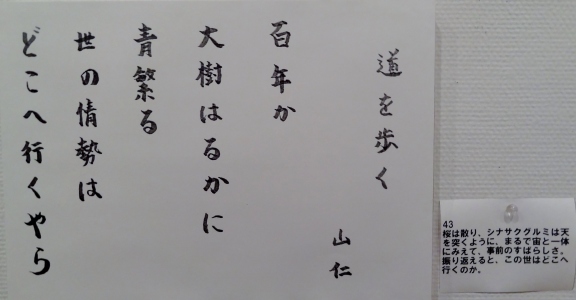 道を歩く
山仁
百年か
大樹はるかに
青繁る
世の情勢は
どこへ行くやら
43
桜は散り、シナサクグルミは天
を突くように、まるで宙と一体
にみえて、事前のすばらしさ。
振り返えると、この世はどこへ
行くのか。